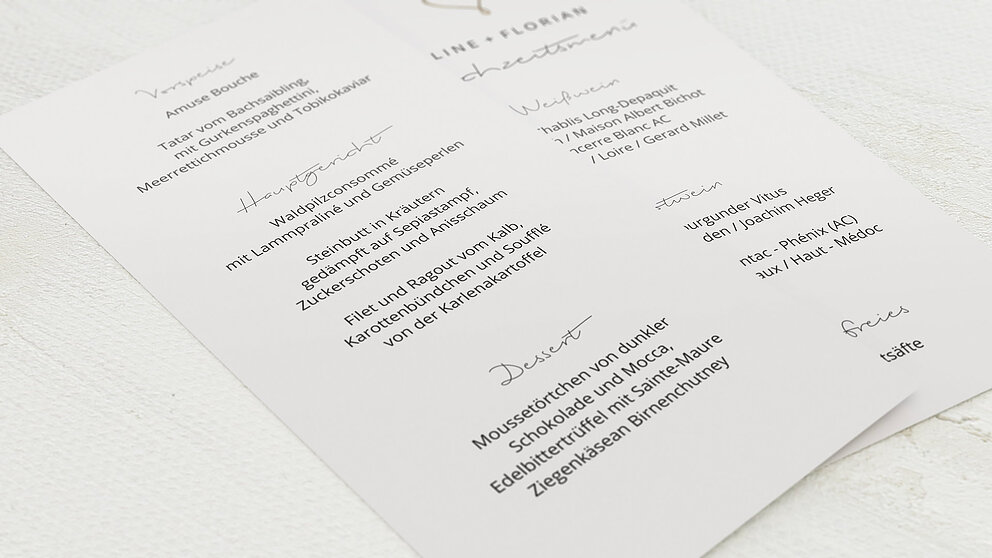 Vorspeise
Amuse Bouche
Tatar vom Bachsaibling,
mit Gurkenspaghettini,
Meerrettichmousse und Tobikokaviar
Hauptgericht
Waldpilzconsommé
mit Lammpraliné und Gemüseperlen
Steinbutt in Kräutern
gedämpft auf Sepiastampf,
Zuckerschoten und Anisschaum
Filet und Ragout vom Kalb,
Karottenbündchen und Soufflé
von der Karlenakartoffel
Dessert
Moussetörtchen von dunkler
Schokolade und Mocca,
Edelbittertrüffel mit Sainte-Maure
Ziegenkäsean Birnenchutney
LINE + FLORIAN
chzeitsmenü
Weißwein
hablis Long-Depaquit
/ Maison Albert Bichot
ncerre Blanc AC
/ Loire / Gerard Millet
twein
urgunder Vitus
den / Joachim Heger
ntac - Phénix (AC)
aux / Haut - Médoc
freies
tsäfte